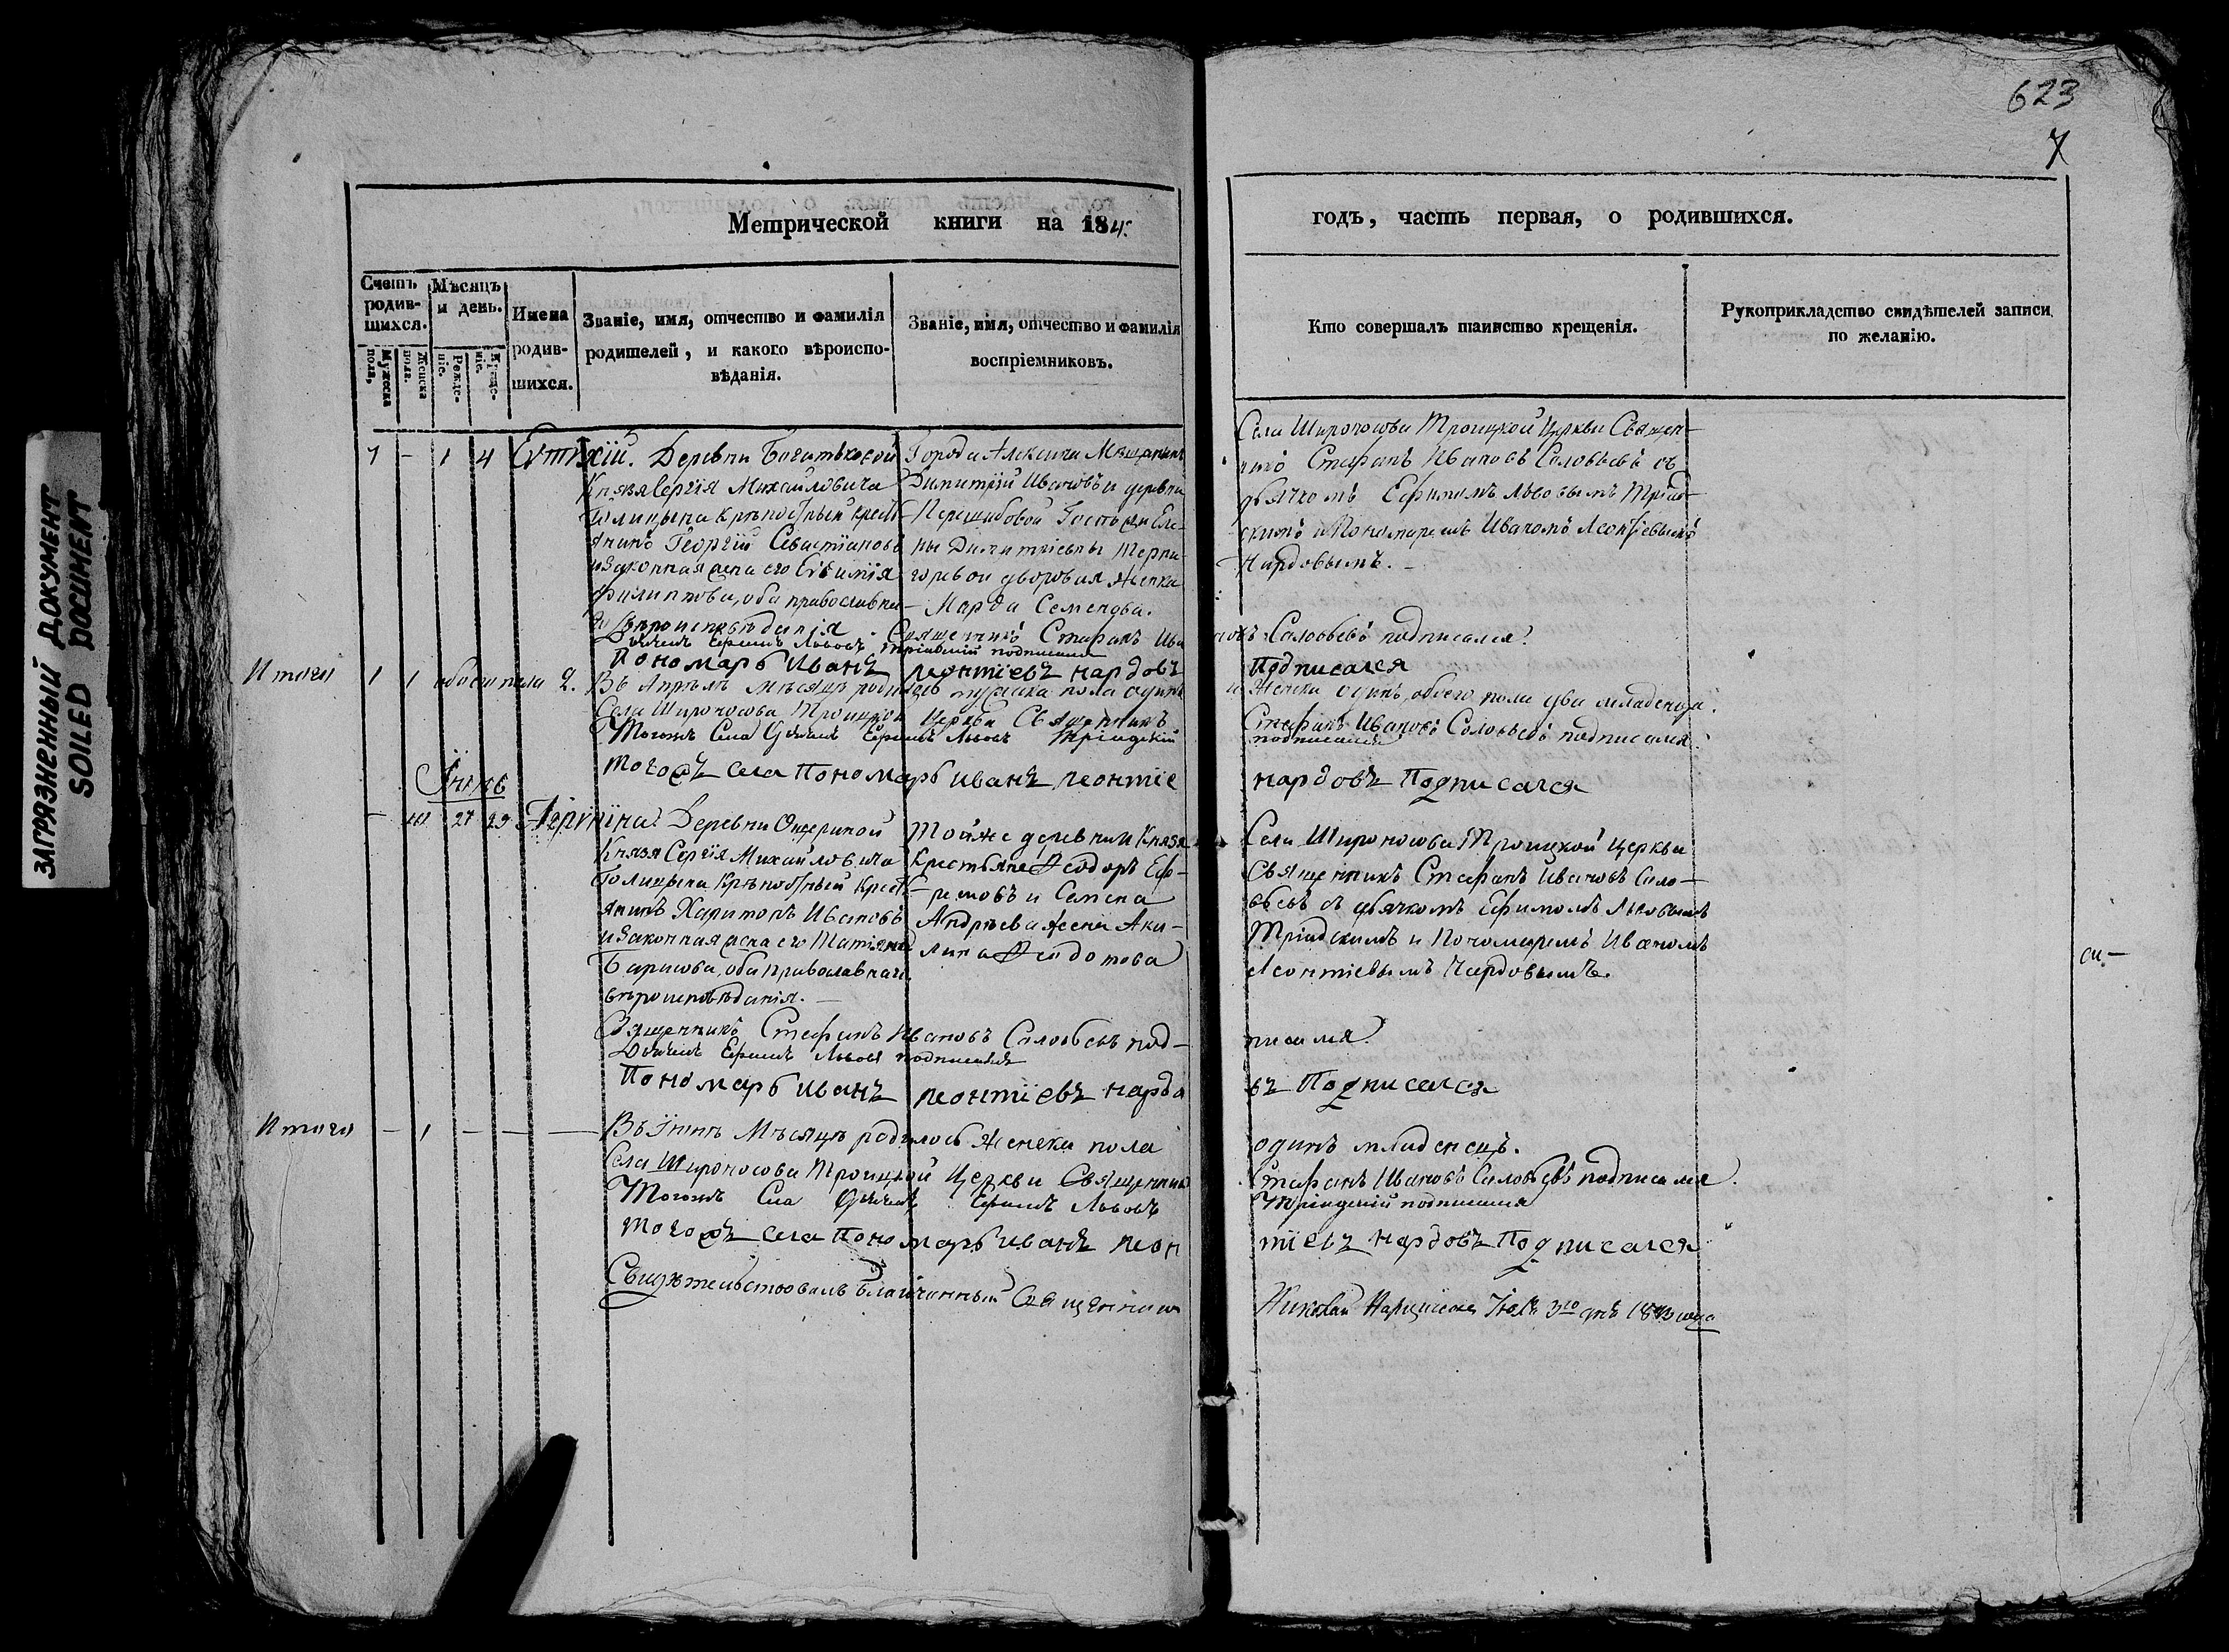 ЗАГРЯЗНЕННЫЙ ДОКУМЕНТ
SOILED DOCUMENT
623
7
Метрической книги на 184
годъ, часть первая, о родившихся.
Счетъ родив-щихся.
Мѣсяцъ и день.
Имена родив-шихся.
Званіе, имя, отчество и фамилія
родителей, и какого вѣроиспо-
вѣданія.
Званіе, имя, отчество и фамилія
воспріемниковъ.
Кто совершалъ таинство крещенія.
Рукоприкладство свидѣтелей записи
по желанію.
Мужеска пола,
Женска пола.
Рожде-ніе.
Креще-ніе.
1 4
Деревни Богатьковой
Князя Сергія Михайловича
Голицына крѣпостный крест-
янинъ Георгій Севастіановъ
и законная жена его Евѳимія
Филиппова, оба православна-
вѣроисповѣданія
Города Алексина Мѣщанинъ
Димитрій Ивановъ и деревни
Госпожи Еле-
ны Димитріевны Терпи-
горевой дворовая женка
Марѳа Семенова.
Села Широносова Троицкой Церкви Священ-
никъ Стефанъ Ивановъ Соловьевъ съ
дьячкомъ Ефимомъ Львовымъ Тріод-
скимъ и Пономаремъ Иваномъ Леонтіевымъ
Нардовымъ.
Священникъ Стефанъ Ива
новъ Соловьевъ подписался.
Дьячекъ Ефимъ Львовъ Тріодскій подписался
Пономарь Иванъ Леонтіевъ Нардовъ
Подписался
Итого 1 1 обоего пола 2. Въ Апрѣлѣ Мѣсяцѣ родилось мужска пола одинъ
и женска одинъ, обоего пола два младенца.
Села Широносова Троицкой Церкви Священникъ
Стефанъ Ивановъ Соловьевъ подписался.
Тогожъ Села Дьячекъ Ефимъ Львовъ Тріодскій
подписался
Тогожъ села Пономарь Иванъ Леонтіе
Нардовъ Подписался
Іюнь
- 27 29
Деревни
Князя Сергія Михайловича
Голицына Крѣпостный Крест-
янинъ Харитонъ Ивановъ
и законная жена его Татіяна
Борисова, оба православнаго
вѣроисповѣданія.
Тойже деревни и Князя
Крестьяне Ѳеодоръ Еф-
ремовъ и Семена
Андрѣева жена Аки-
лина Ѳеодотова
Села Широносова Троицкой Церкви
Священникъ Стефанъ Ивановъ Соло-
вьевъ съ дьячкомъ Ефимомъ Львовымъ
Тріодскимъ и Пономаремъ Иваномъ
Леонтіевымъ Нардовымъ.
Священникъ Стефанъ Ивановъ Соловьевъ под-
писался
Дьячекъ Ефимъ Львовъ подписался
Пономарь Иванъ Леонтіевъ Нардо
въ Подписался
Итого - 1 - - - Въ Іюнѣ Мѣсяцѣ родилось женска пола
одинъ младенецъ.
Села Широносова Троицкой Церкви Священникъ
Стефанъ Ивановъ Соловьевъ подписался.
Тогожъ Села Дьячекъ Ефимъ Львовъ
Тріодскій подписался
Тогожъ села Пономарь Иванъ Леон
тіевъ Нардовъ Подписался
Свидѣтельствовалъ благочинный Священникъ
Николай